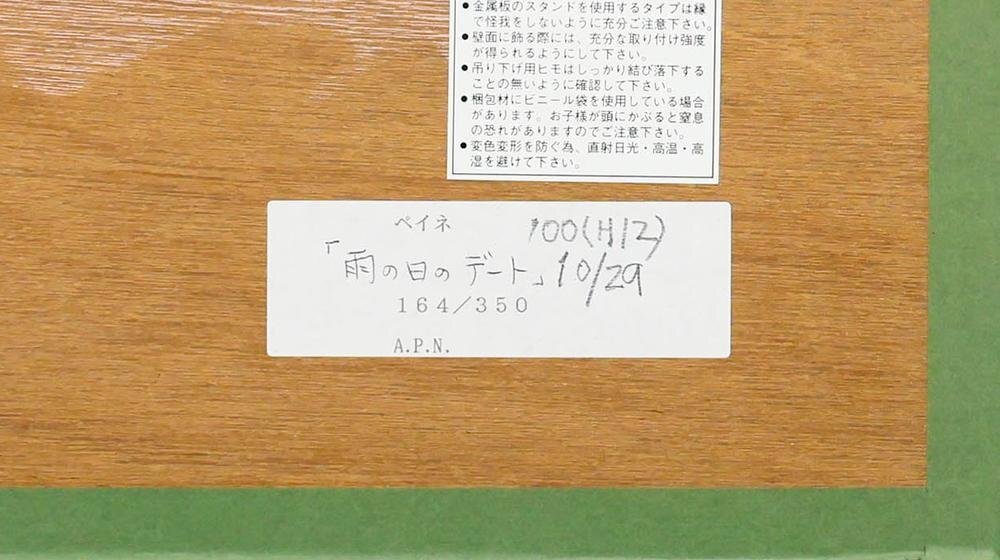 ●金属板のスタンドを使用するタイプは縁
で怪我をしないように充分ご注意下さい。
●壁面に飾る際には、充分な取り付け強度
が得られるようにして下さい。
●吊り下げ用ヒモはしっかり結び落下する
ことの無いように確認して下さい。
●梱包材にビニール袋を使用している場合
があります。お子様が頭にかぶると窒息
の恐れがありますのでご注意下さい。
●変色変形を防ぐ為、直射日光・高温・高
湿を避けて下さい。
ペイネ 100(H12)
「雨の日のデート」10/29
164/350
A.P.N.